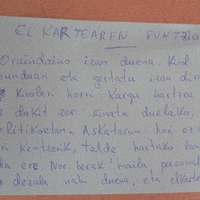 ELKARTEAREN FUNTZIO
Oraindaino izan duena. Kid
munduan eta gertatu izan dira
Kirolari horri kargu hartzea
dakit zer sinatu duelako,
olitikoetan. Askatasun hori ez
kentzerik, talde hartako lan
da ere. Nor berak maila pertsonal
dezala nahi duena, eta elkarte